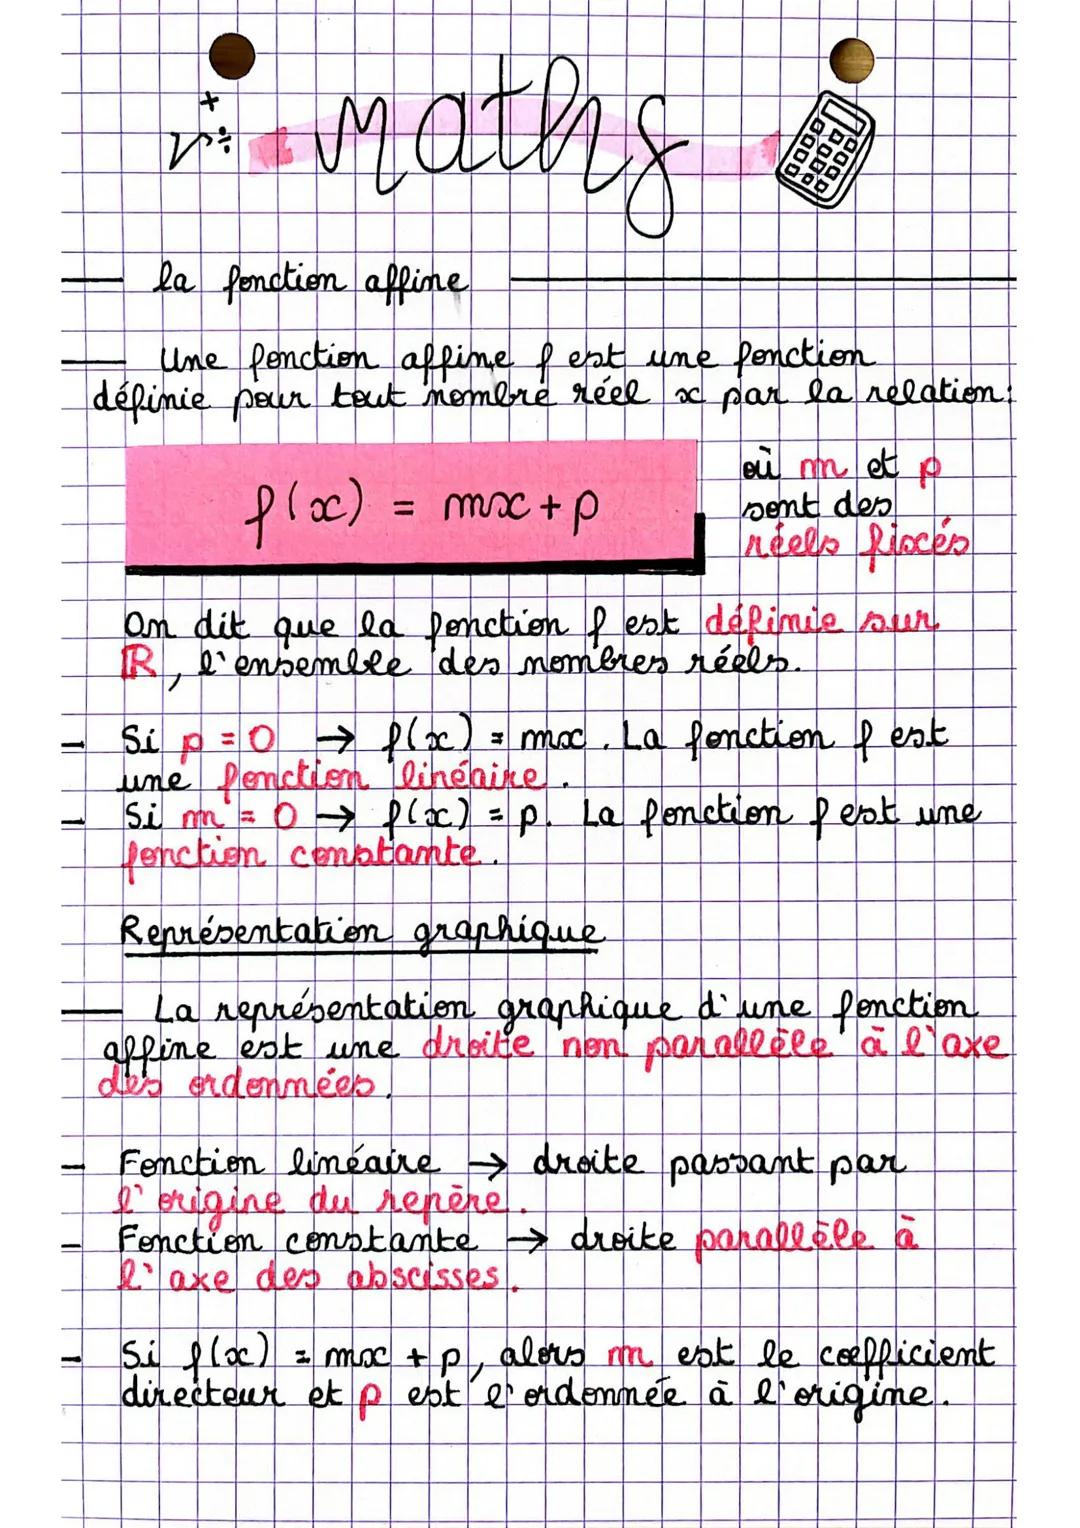 maths
la fonction affine
Une fonction affine f est une fonction
définie pour tout nombre réel x par la relation:
f(x) = mx + p
où m et p
sont des
réels fixés
On dit que la fonction f est définie sur
ℝ, l'ensemble des nombres réels.
- Si p = 0 → f(x) = mx. La fonction f est
une fonction linéaire.
- Si m = 0 → f(x) = p. La fonction f est une
fonction constante.
Représentation graphique
La représentation graphique d'une fonction
affine est une droite non parallèle à l'axe
des ordonnées.
- Fonction linéaire → droite passant par
l'origine du repère.
- Fonction constante → droite parallèle à
l'axe des abscisses.
- Si f(x) = mx + p, alors m est le coefficient
directeur et p est l'ordonnée à l'origine.